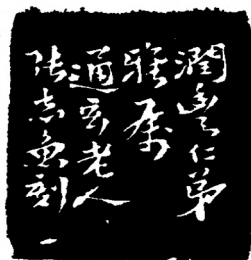 潤豊仁弟
雅属
通玄老人
張志魚刻